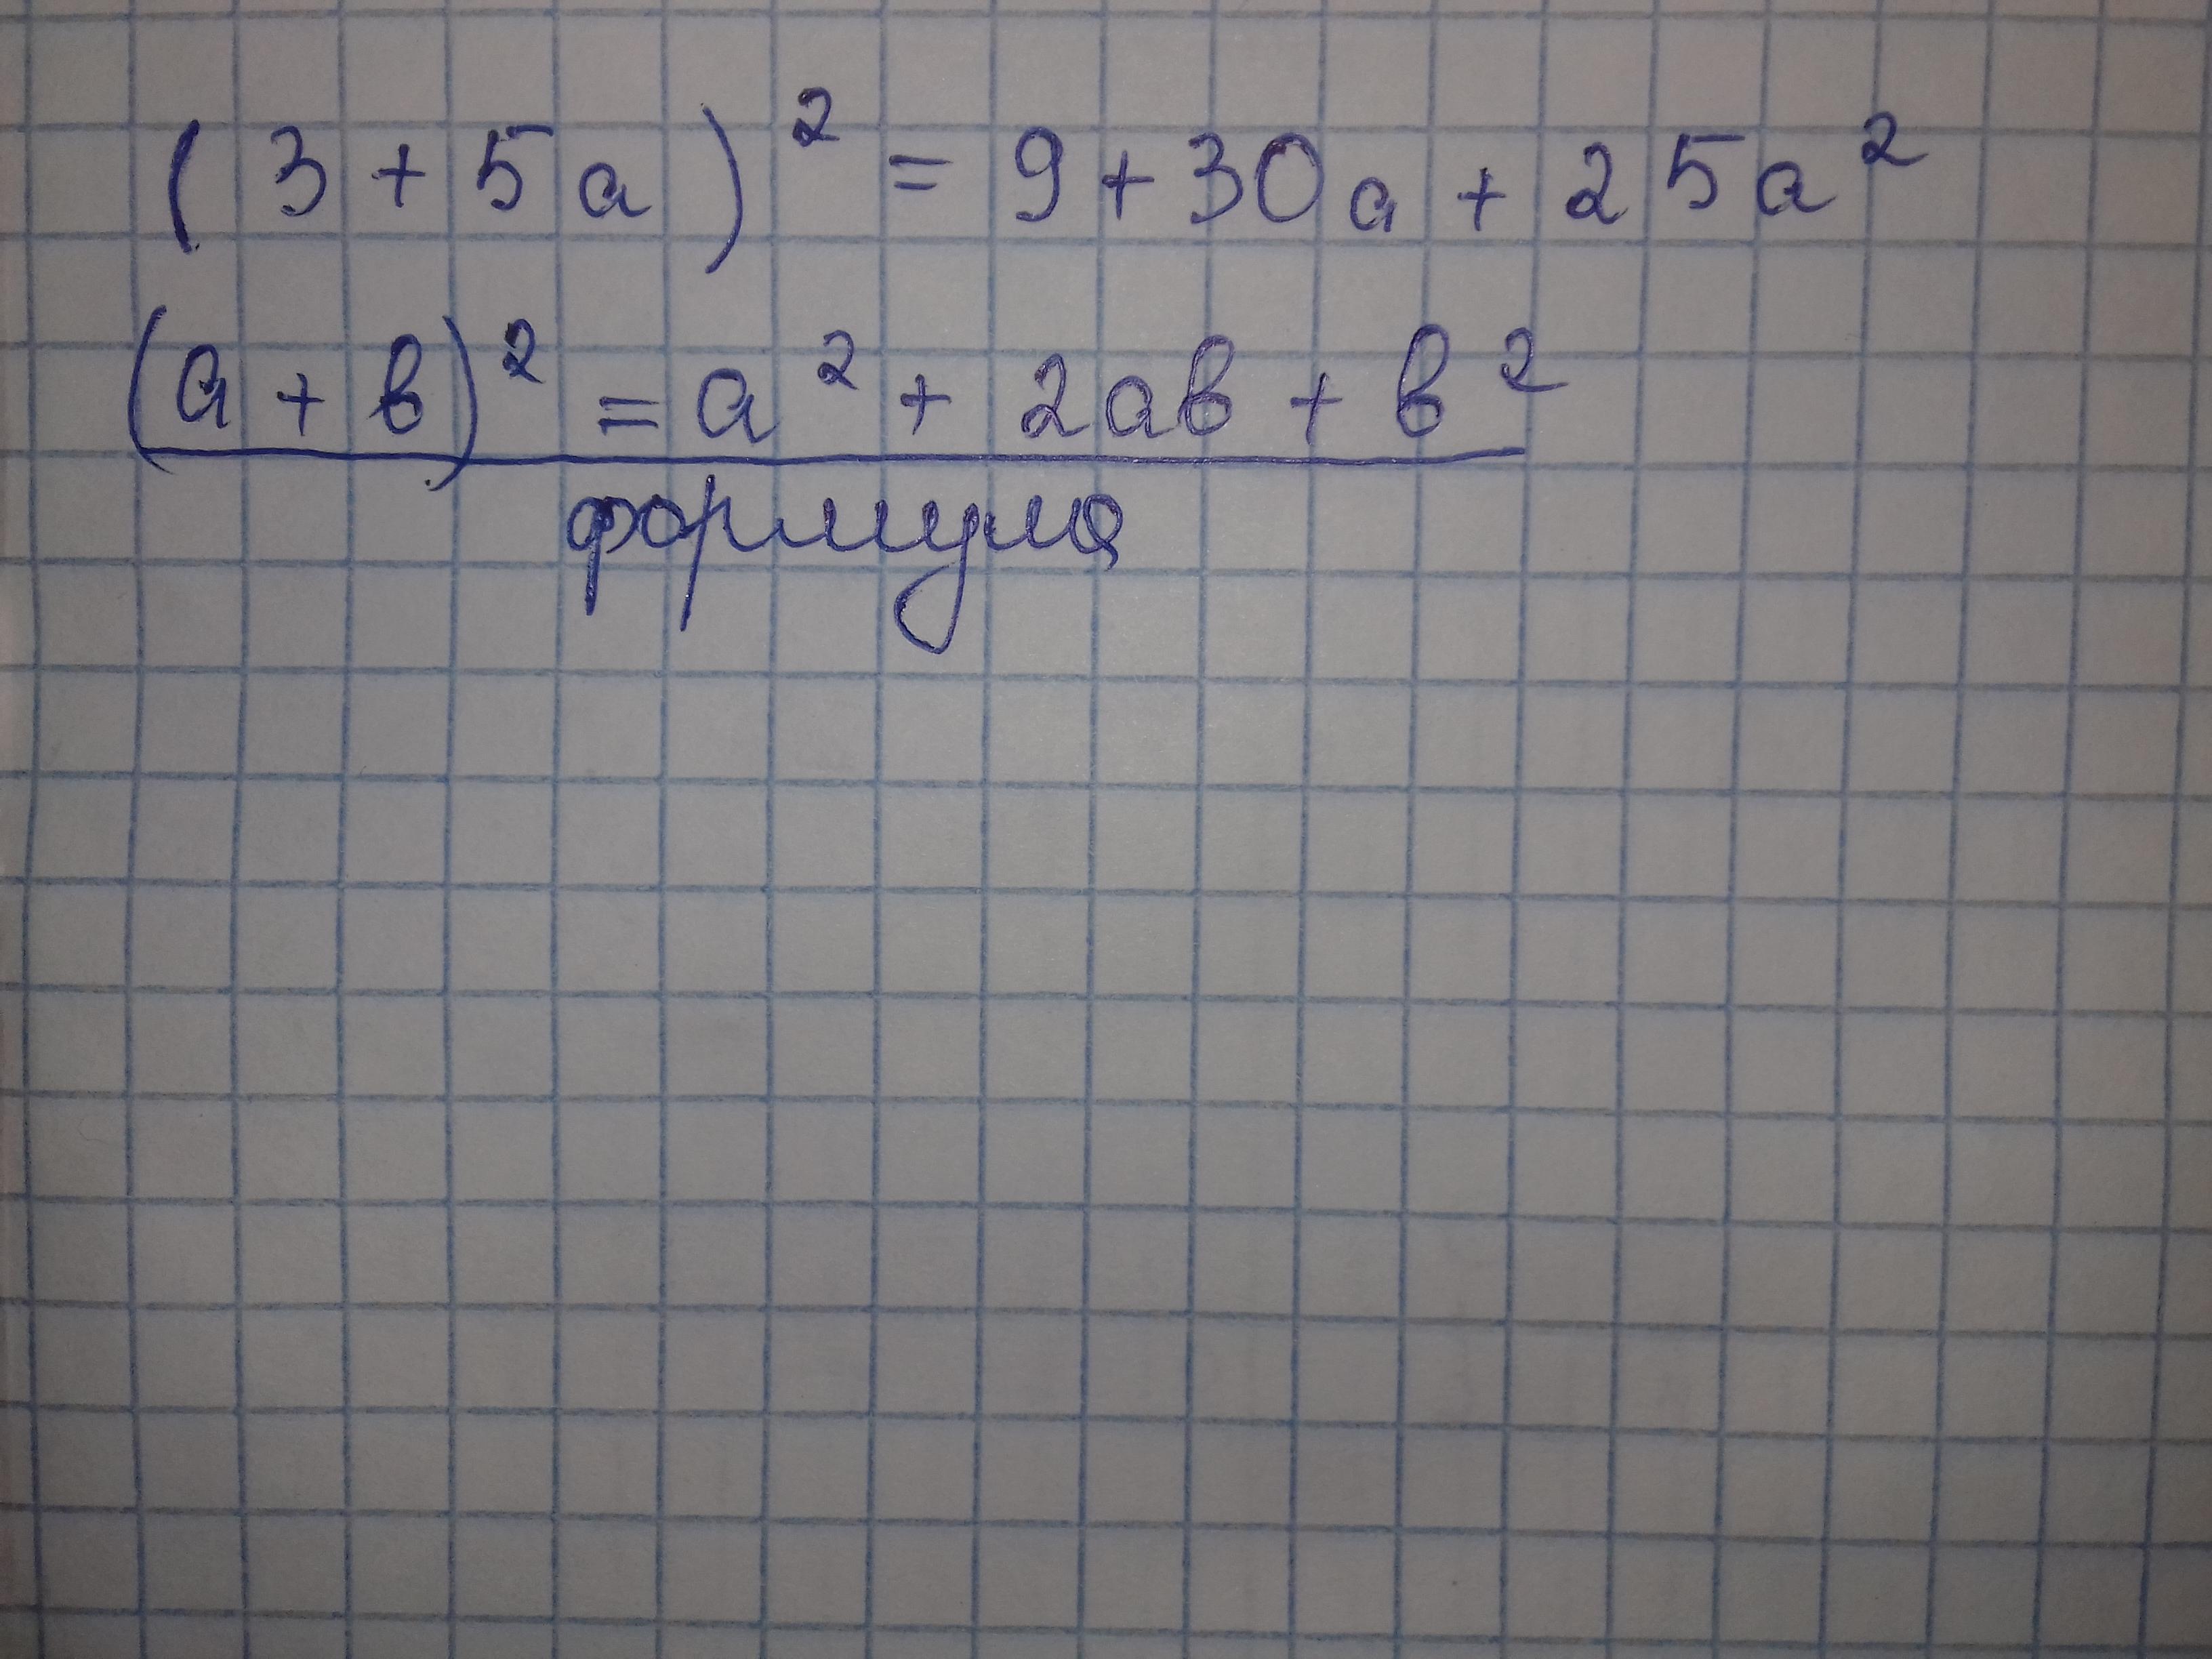 (3 + 5a)² = 9 + 30a + 25a²
(a + b)² = a² + 2ab + b²
формула